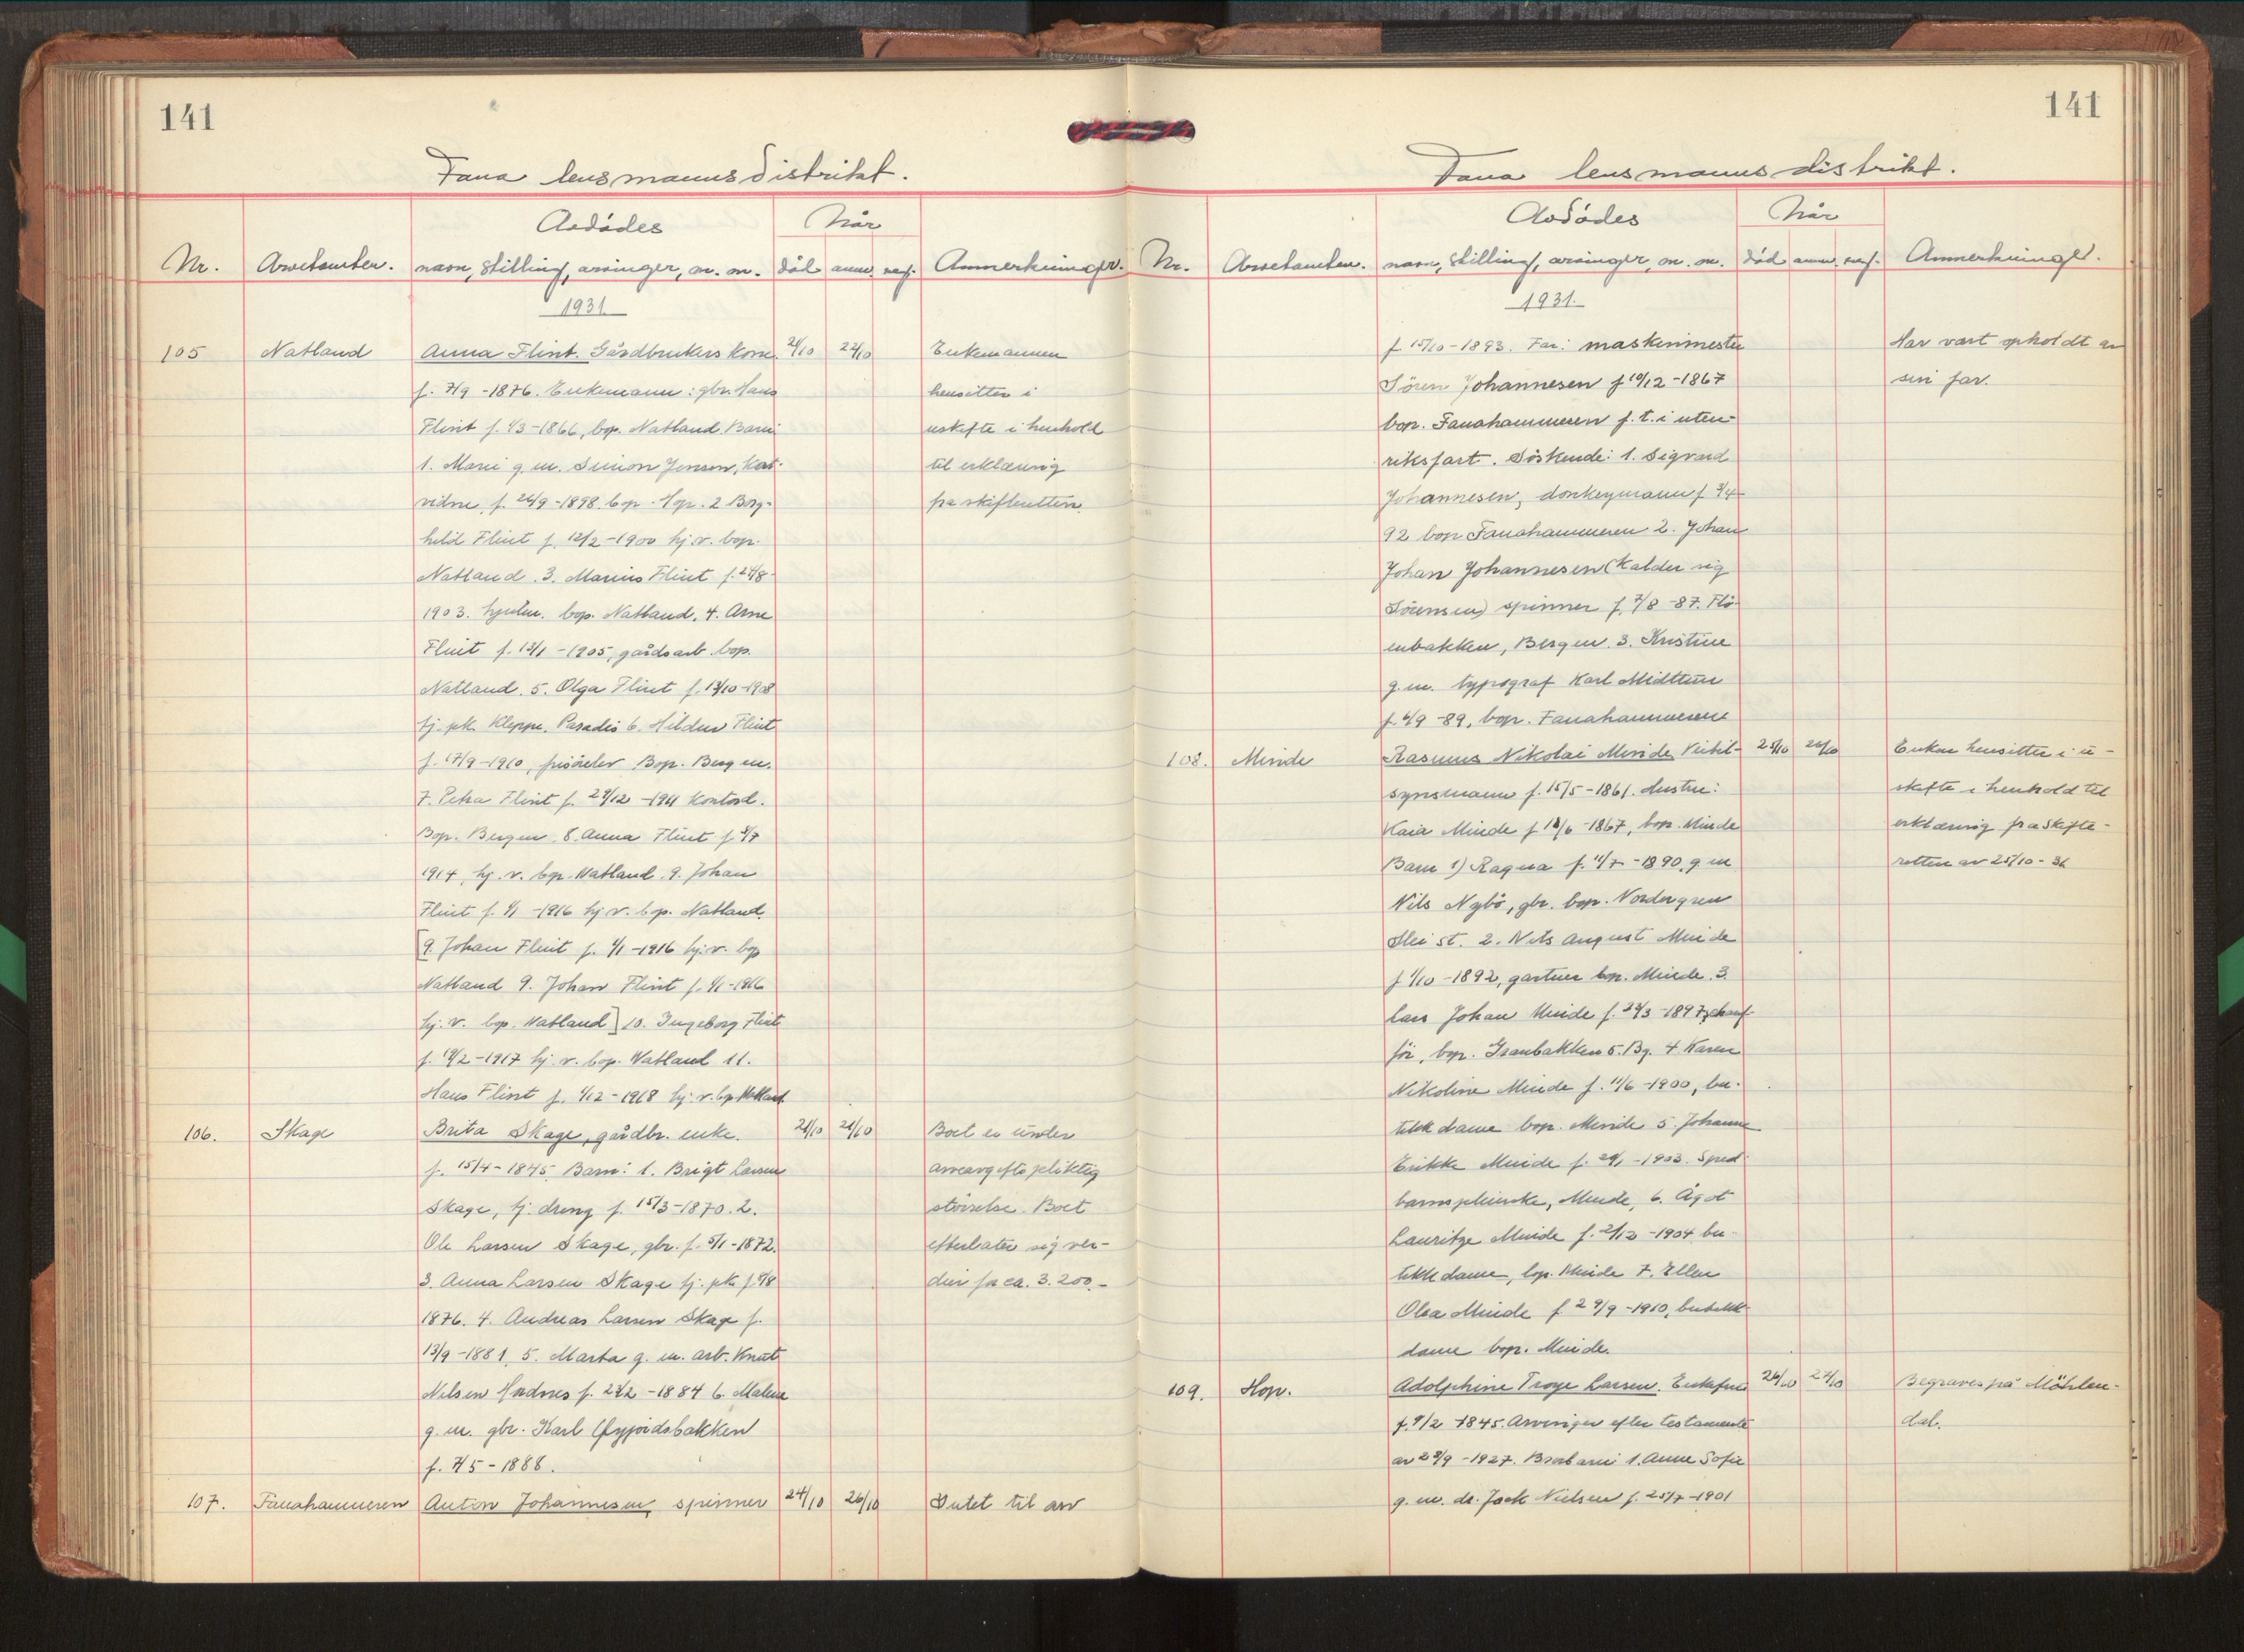 141
Fana lensmannsdistrikt.
Avdødes
Når
Nr.
navn, stilling, arvinger, m. m.
død
anm.
Anmerkninger.
1931
105
Natland
Anna Flint. Gårdbrukers kone.
24/10
Enkemannen
f. 7/9 - 1876. Enkemann: gbr. Hans
hensitter i
Flint f. 1/3 - 1866, bop. Natland. Barn:
uskifte i henhold
1. Marie g. m. Simon Jensen,
til erklæring
f. 26/9 - 1898. bop. Hop. 2 Borg-
fra skifteretten.
hild Flint f. 12/2 - 1900 hj. v. bop.
Natland. 3. Marius Flint f.
1903. bop. Natland. 4. Arne
Flint f. 13/1 - 1905, gårdsarb. bop.
Natland. 5. Olga Flint f. 13/10 - 1908
tj. pk. Kleppe, Paradis 6. Flint
f. 17/9 - 1910, Bop. Bergen.
7. Petra Flint f. 29/12 - 1911
Bop. Bergen. 8. Anna Flint f.
1914, hj. v. bop. Natland. 9. Johan
Flint f. 1/1 - 1916 hj. v. bop. Natland.
[9. Johan Flint f. 1/1 - 1916 hj. v. bop
Natland 9. Johan Flint f. 1/1 - 1916
hj. v. bop. Natland] 10. Ingeborg Flint
f. 19/2 - 1917 hj. v. bop. Natland 11.
Hans Flint f. 1/12 - 1918 hj. v. bop. Natland.
106.
Skage
Brita Skage, gårdbr. enke.
21/10
21/10
Boet er under
f. 15/4 - 1845. Barn: 1. Brigt Larsen
arveavgiftspliktig
Skage, tj. dreng f. 15/3 - 1870. 2.
størrelse. Boet
Ole Larsen Skage, gbr. f. 5/1 - 1872.
efterlater sig ver-
3. Anna Larsen Skage tj. pk. f.
dier for ca. 3.200.-
1876. 4. Andreas Larsen Skage f.
13/9 - 1881, 5. Marta g. m. arb. Knut
Nilsen Hordnes f. 23/2 - 1884 6. Malene
g. m. gbr. Karl
f. 7/5 - 1888.
107.
Fanahammeren
Anton Johannesen, spinner
24/10
26/10
Intet til arv
141
Fana lensmannsdistrikt.
Avdødes
Når
Nr.
navn, stilling, arvinger, m. m.
død
anm.
Anmerkninger.
1931.
f. 15/10 - 1893. Far: maskinmester
Har vært opholdt av
Sören Johannesen f 10/12 - 1867
sin far.
bop. Fanahammeren f. t. i uten-
riksfart. Söskende: 1. Sigvard
Johannesen, donkeymann f. 3/4
92 bop Fanahammeren 2. Johan
Johan Johannesen (kalder sig
Sörensen) spinner f. 7/8 - 87. Flö-
enbakken, Bergen. 3. Kristine
g. m. typograf Karl Midttun
f. 4/9 - 89, bop. Fanahammeren
108.
Minde
Rasmus Nikolai Minde,
25/10
26/10
Enken hensitter i u-
synsmann f. 15/5 - 1861. Hustru:
skifte i henhold til
Kaia Minde f 18/6 - 1867, bop. Minde
erklæring fra skifte-
Barn 1) Ragna f. 11/7 - 1890, g. m
retten av 25/10 - 31
Nils Nybö, gbr. bop. Nordre
st. 2. Nils August Minde
f 1/10 - 1892, gartner bop. Minde. 3.
Lars Johan Minde f. 23/3 - 1897,
før, bop. 5. Bg. 4 Karen
Nikoline Minde f. 11/6 - 1900, bu-
tikkdame bop. Minde 5. Johanne
Erikke Minde f. - 1903. Sped
barnspleierske, Minde, 6. Ågot
Lauritze Minde f. 2/12 - 1904 bu-
tikkdame, bop. Minde 7. Ellen
Olea Minde f 29/9 - 1910, butikk-
dame bop. Minde.
109.
Hop.
Adolphine Troye Larsen. Enkefrue
26/10
27/10
Begraves på Möhlen-
f. 9/2 1845. Arvinger efter testamente
dal.
av 28/9 - 1927. Brorbarn: 1. Anne Sofie
g. m. dr. Jack Nielsen f. 25/7 - 1901